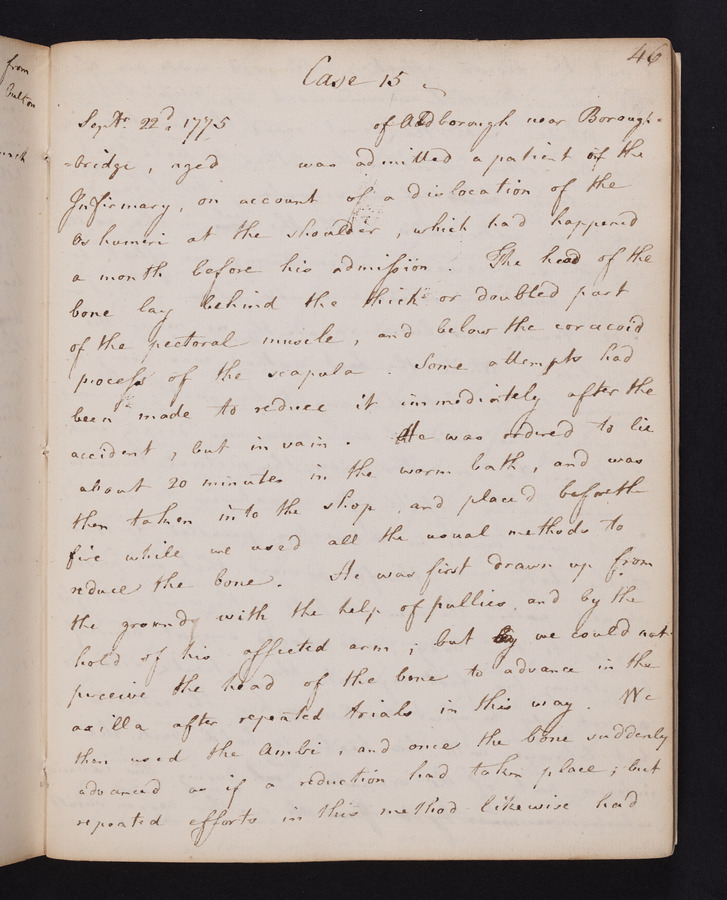 from
46
Case 15
Septr. 22d. 1775 of Aldborough near Borough-
=bridge, aged was admitted a patient of the
Infirmary, on account of a dislocation of the
Os humeri at the shoulder, which had happened
a month before his admission. The head of the
bone lay behind the thick or doubled part
of the pectoral muscle, and below the coracoid
process of the scapula. Some attempts had
been made to reduce it immediately after the
accident, but in vain. He was ordered to lie
about 20 minutes in the warm bath, and was
then taken into the shop, and placed before the
fire while we used all the usual methods to
reduce the bone. He was first drawn up from
the ground with the help of pullies, and by the
hold of his affected arm; but we could not
perceive the head of the bone to advance in the
axilla after repeated trials in this way. We
then used the Ambi, and once the bone suddenly
advanced as if a reduction had taken place; but
repeated efforts in this method likewise had